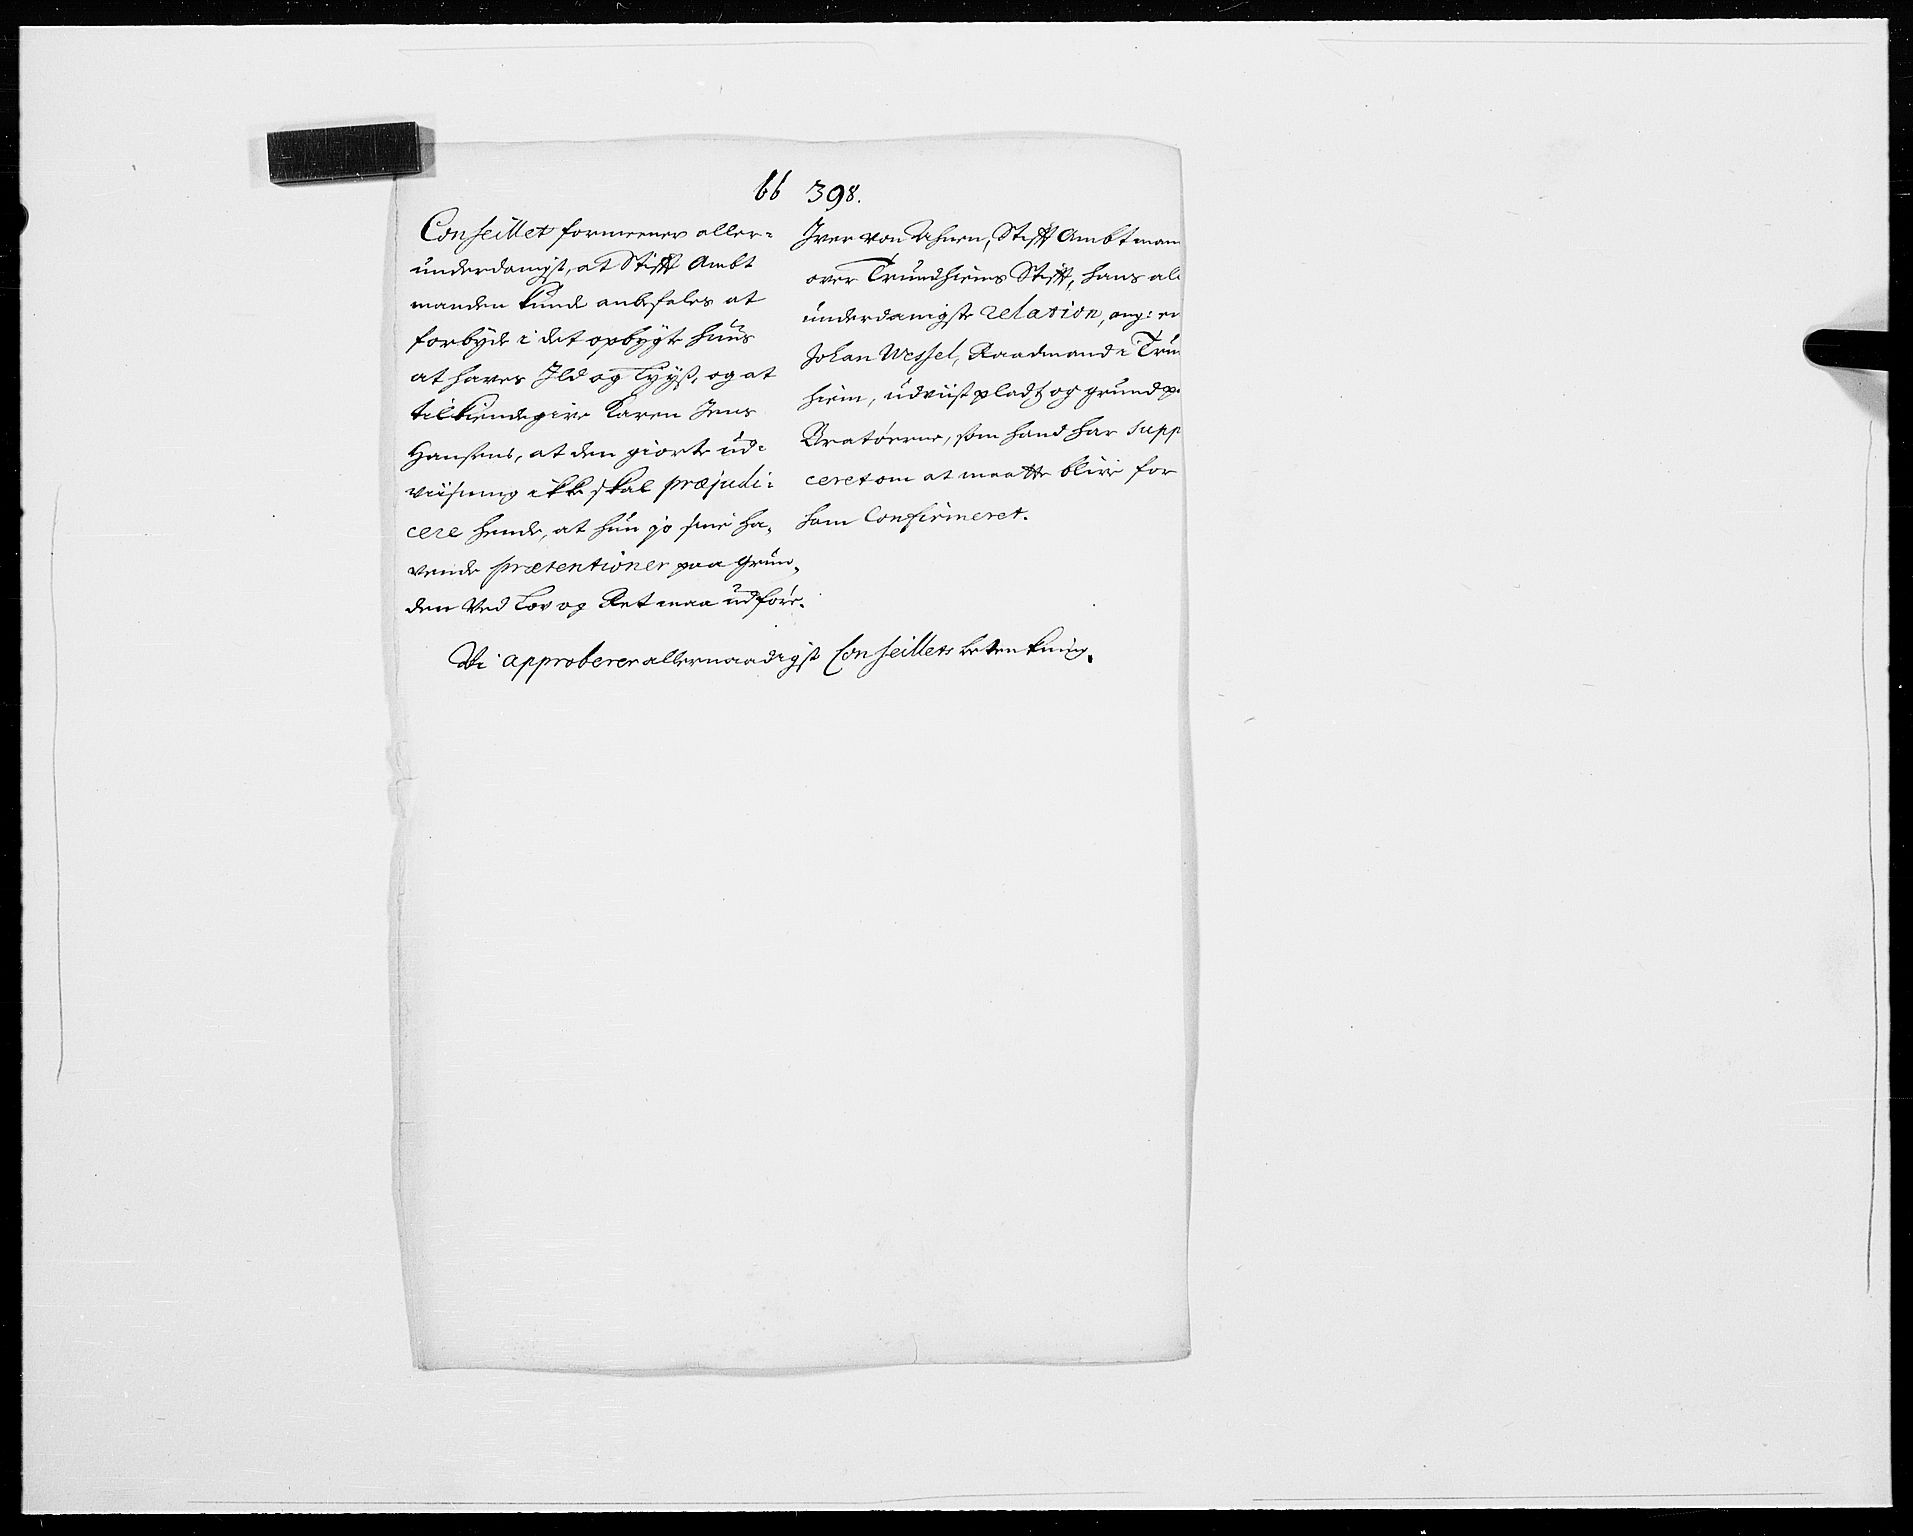 66 398.
Conseillet formeener aller=
underdanigst, at Stifft Ambt
manden kunde anbefales at
forbyde i det opbygte Huus
at haves Ild og Lyyß, og at
tilkiendegive Karen Jens
Hansens, at den giorte ud=
viisning ikke skal præjudi=
cere hende, at hun jo sine ha=
vende prætentioner paa Grun=
den Ved Lov og Ret maa udføre.
Iver von Ahnen, Stifft Ambtman
over Trundhiems Stifft, hans al
underdanigste relation, ang: en
Johan Wessel, Raadmand i Trun
hiem, udviist pladtz og grund p
Bratøerne, som hand har supp
ceret om at maatte blive for
ham Confirmeret.
Vi approberer allernaadigst Conseillets betenkning.